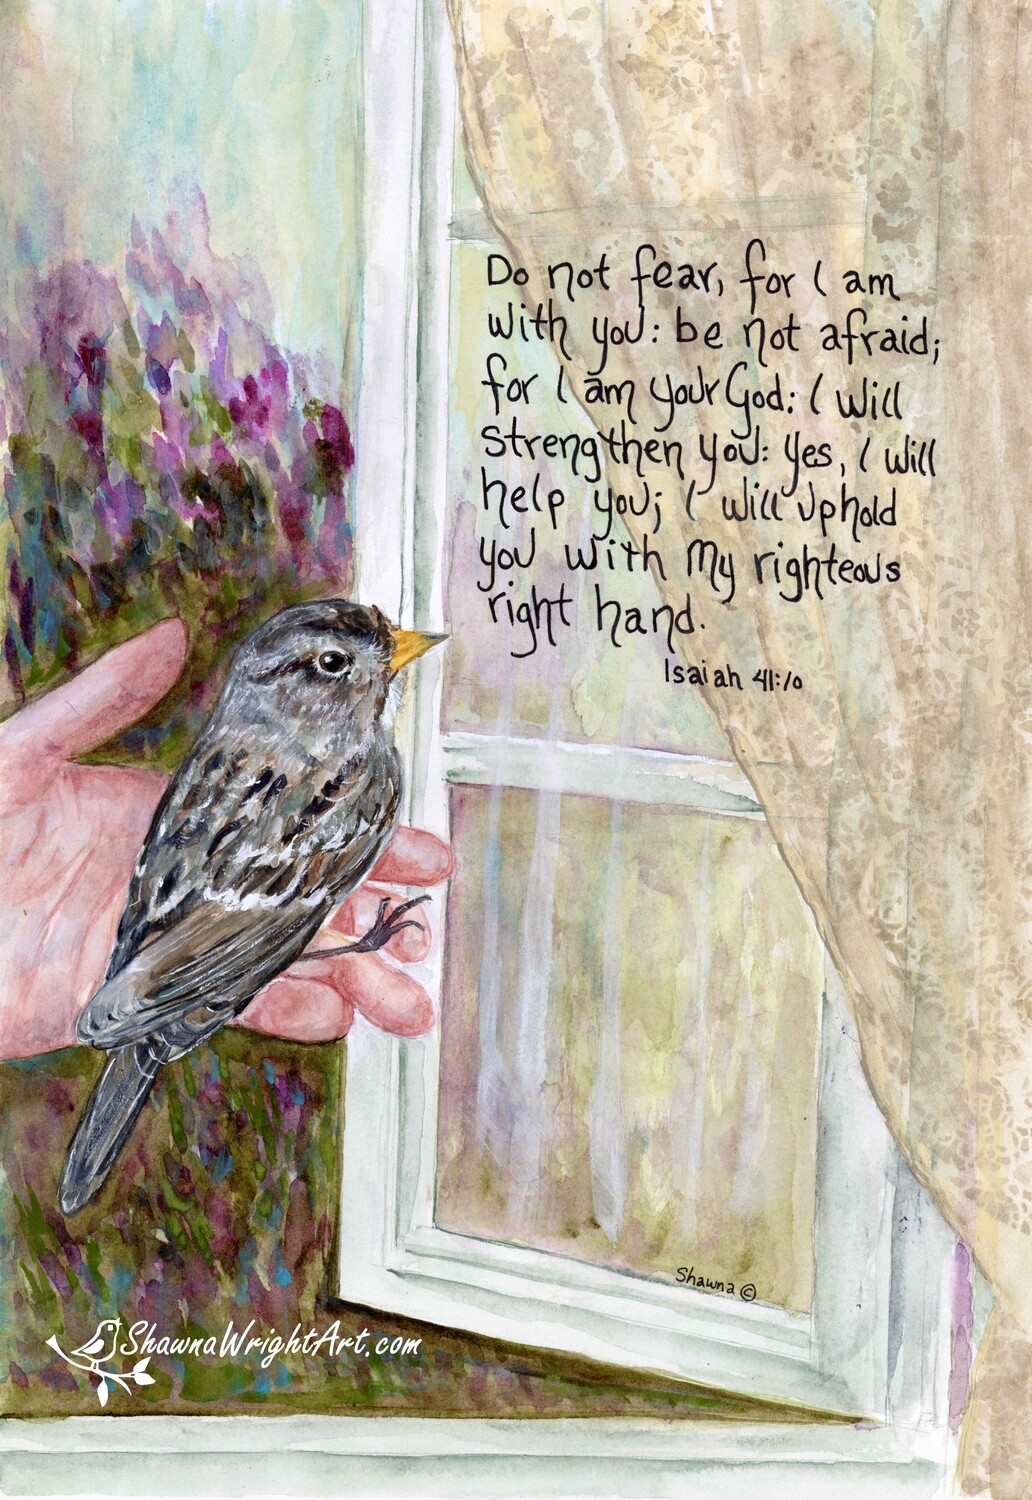 Do not fear, for I am
with you: be not afraid;
for I am your God: I will
strengthen you: yes, I will
help you; I will uphold
you with My righteous
right hand.
Isaiah 41:10
Shawna ©
ShawnaWrightArt.com